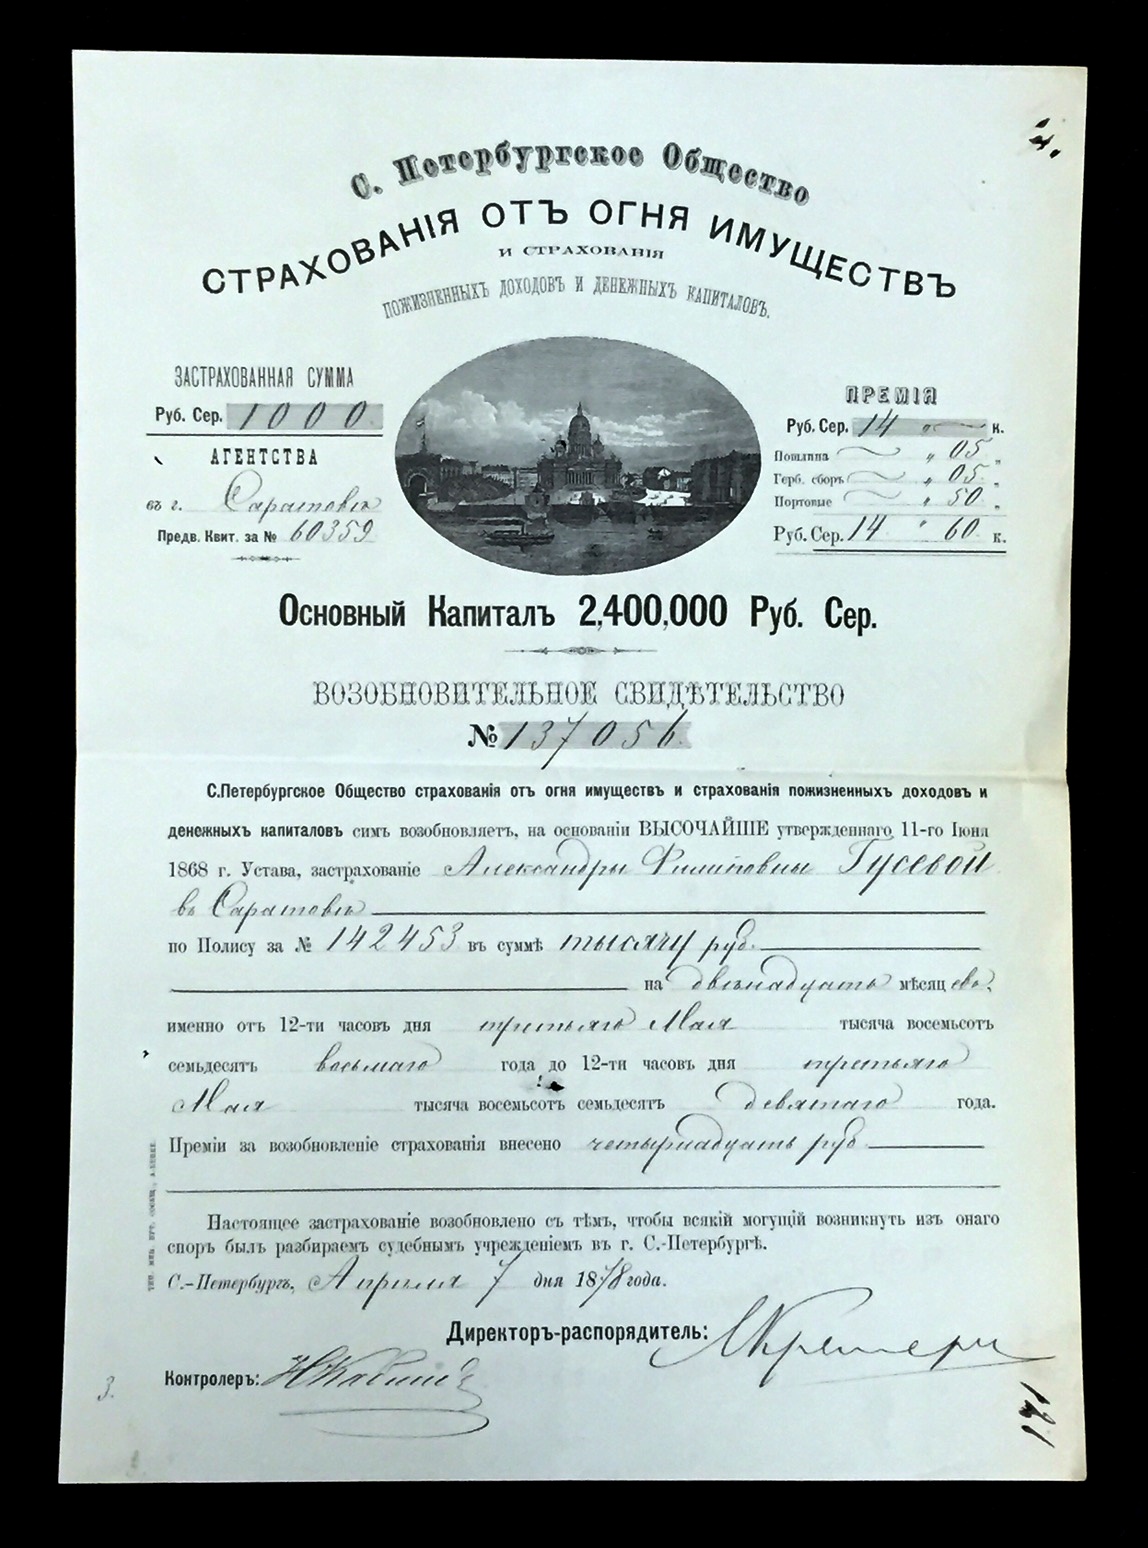 С. Петербургское Общество
СТРАХОВАНІЯ ОТЪ ОГНЯ ИМУЩЕСТВЪ
И СТРАХОВАНІЯ
ПОЖИЗНЕННЫХЪ ДОХОДОВЪ И ДЕНЕЖНЫХЪ КАПИТАЛОВЪ.
ЗАСТРАХОВАННАЯ СУММА
Руб. Сер. 1000
АГЕНТСТВА
въ г. Саратовѣ
Предв. Квит. за № 60359
ПРЕМІЯ
Руб. Сер. 14 „ — к.
Пошлина „ 05 „
Герб. сборъ „ 05 „
Портовые „ 50 „
Руб. Сер. 14 „ 60 к.
Основный Капиталъ 2,400,000 Руб. Сер.
ВОЗОБНОВИТЕЛЬНОЕ СВИДѢТЕЛЬСТВО
№ 137056
С.Петербургское Общество страхованія отъ огня имуществъ и страхованія пожизненныхъ доходовъ и
денежныхъ капиталовъ симъ возобновляетъ, на основаніи ВЫСОЧАЙШЕ утвержденнаго 11-го Іюня
1868 г. Устава, застрахованіе Александры Филиповны Гусевой
въ Саратовѣ
по Полису за № 142453 въ суммѣ тысячу руб.
на двѣнадцать мѣсяцевъ,
именно отъ 12-ти часовъ дня третьяго Мая тысяча восемьсотъ
семьдесятъ восьмаго года до 12-ти часовъ дня третьяго
Мая тысяча восемьсотъ семьдесятъ девятаго года.
Преміи за возобновленіе страхованія внесено четырнадцать руб
Настоящее застрахованіе возобновлено съ тѣмъ, чтобы всякій могущій возникнуть изъ онаго
споръ былъ разбираемъ судебнымъ учрежденіемъ въ г. С.-Петербургѣ.
С.-Петербургъ, Апрѣля 7 дня 1878 года.
Директоръ-распорядитель:
Контролеръ:
3.
121